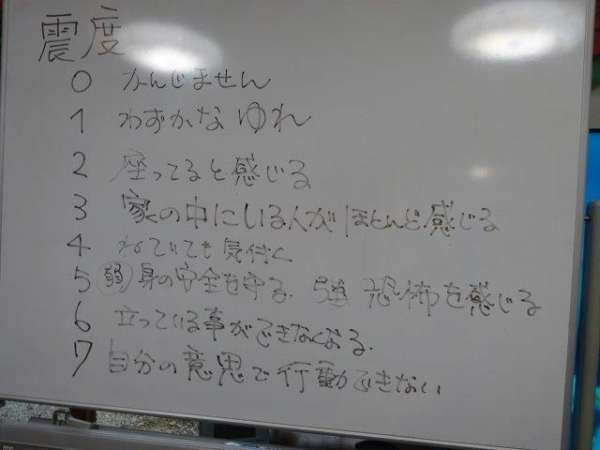 震度
0 かんじません
1 わずかなゆれ
2 座ってると感じる
3 家の中にいる人がほとんど感じる
4 ねていても気付く
5 弱 身の安全を守る. 5強 恐怖を感じる
6 立っている事ができなくなる.
7 自分の意思で行動できない